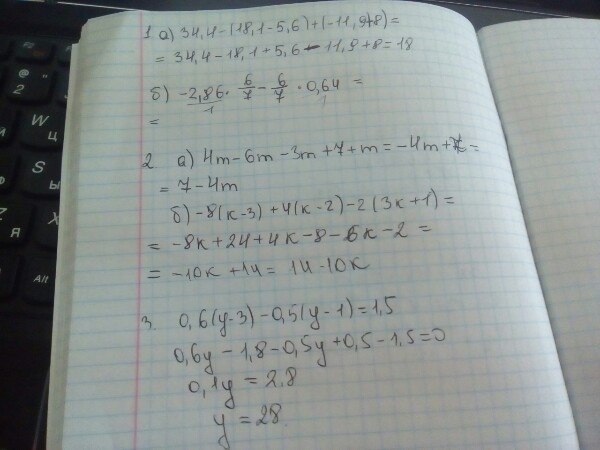 1 а) 34,4-(18,1-5,6)+(-11,9+8)=
= 34,4-18,1+5,6-11,9+8=18
б) -2,86·6/7-6/7·0,64=
1
=
2. а) 4m-6m-3m+7+m=-4m+7=
= 7-4m
б) -8(к-3)+4(к-2)-2(3к+1)=
= -8к+24+4к-8-6к-2=
= -10к+14=14-10к
3. 0,6(у-3)-0,5(у-1)=1,5
0,6у-1,8-0,5у+0,5-1,5=0
0,1у=2,8
у=28
@
2
W
Ц
S
Ы
Z
Я
Alt